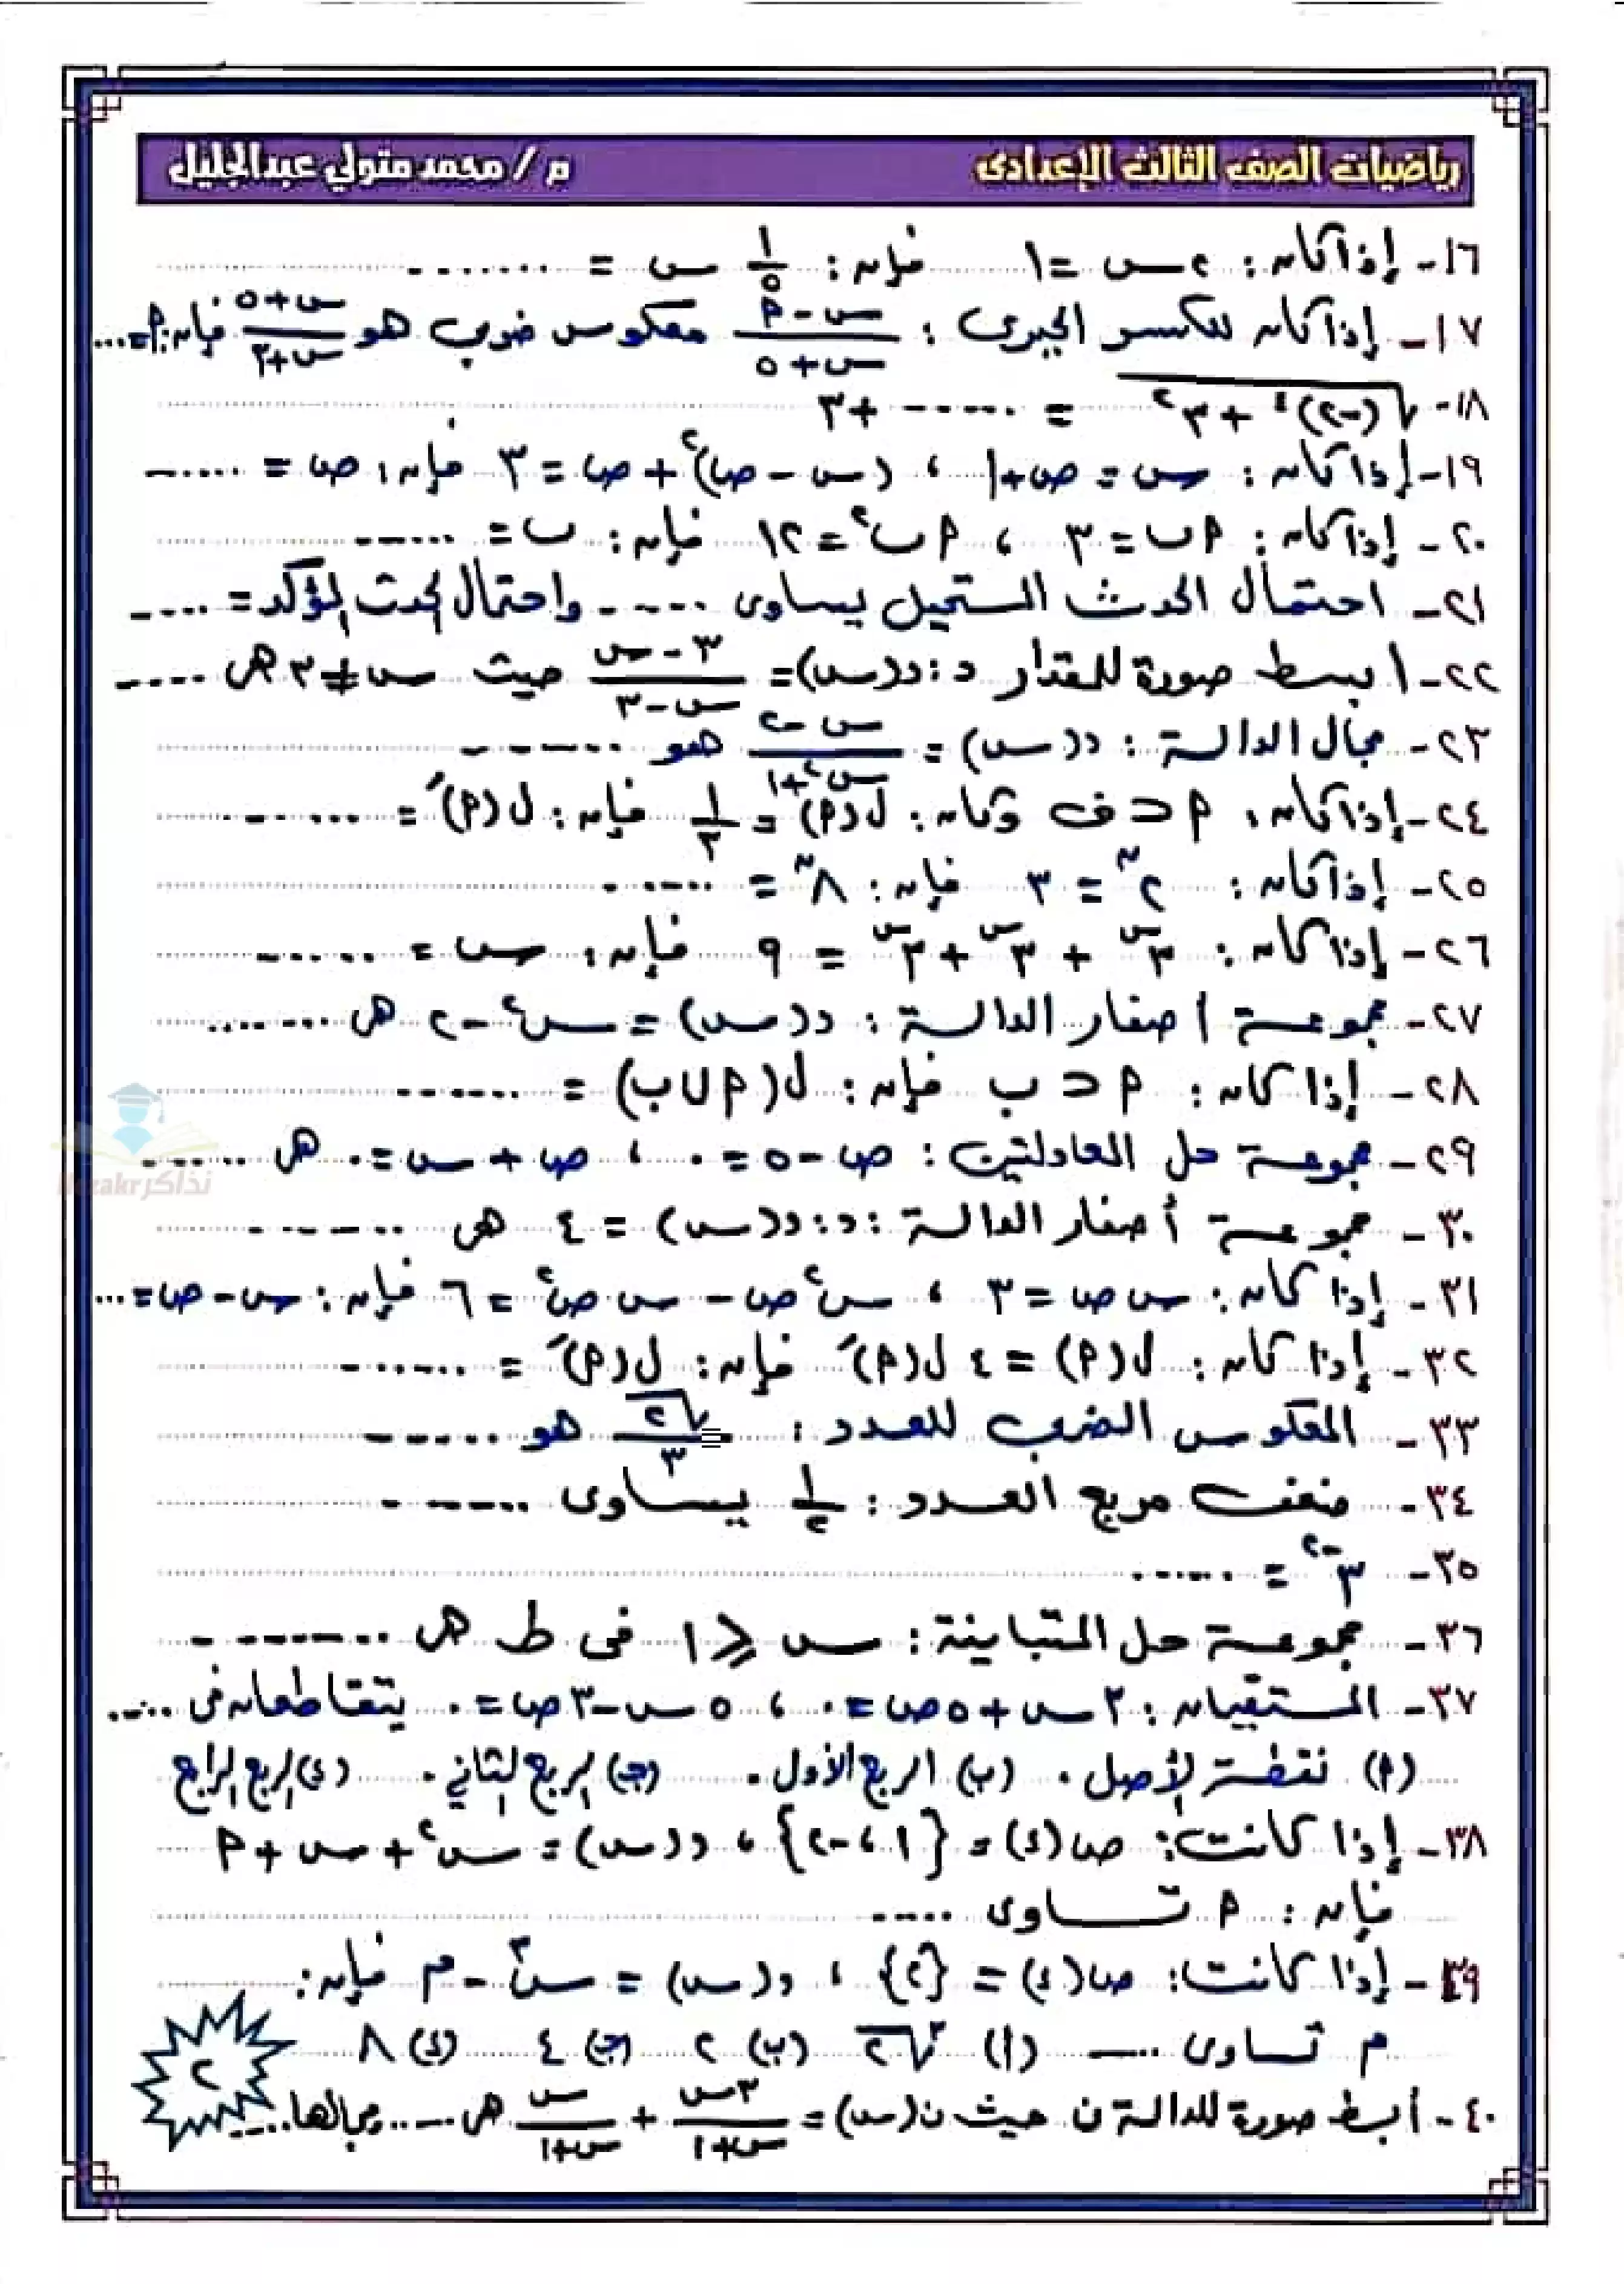 رياضيات الصف الثالث الإعدادى م / محمد متولي عبدالجليل
١٦- إذا كان : ٢ س = ١ فإن : ١/٥ س = .......
١٧- إذا كان للكسر الجبرى : (س - ٢)/(س + ٥) معكوس ضربى هو (س + ٥)/(س + ٣) فإن : ٢ = ...
١٨- √((-٢)^٤ + ٣^٢) = ...... + ٣
١٩- إذا كان : س = ص + ١ ، (س - ص)^٢ + ص = ٣ فإن : ص = ......
٢٠- إذا كان : ٢ ب = ٣ ، ٢ ب^٢ = ١٢ فإن : ب = ......
٢١- احتمال الحدث المستحيل يساوى ..... واحتمال الحدث المؤكد = .....
٢٢- ابسط صورة للمقدار د : د(س) = (٣ - س)/(س - ٣) حيث س ≠ ٣ هى .....
٢٣- مجال الدالة : د(س) = (س - ٢)/(س^٢ + ١) هو .......
٢٤- إذا كان : ٢ ⊂ ف وكان : ل(٢) = ١/٣ فإن : ل(٢)َ = .......
٢٥- إذا كان : ٢^ن = ٣ فإن : ٨^ن = ......
٢٦- إذا كان : ٣^س + ٣^س + ٣^س = ٩ فإن : س = ......
٢٧- مجموعة اصفار الدالة : د(س) = س^٢ - ٢ هى .......
٢٨- إذا كان : ٢ ⊂ ب فإن : ل(٢ ∪ ب) = .......
٢٩- مجموعة حل المعادلتين : ص - ٥ = ٠ ، ص + س = ٠ هى ......
نذاكر Nezakr
٣٠- مجموعة أصفار الدالة : د : د(س) = ٤ هى .......
٣١- إذا كان : س ص = ٣ ، س^٢ ص - س ص^٢ = ٦ فإن : س - ص = ...
٣٢- إذا كان : ل(٢) = ٤ ل(٢)َ فإن : ل(٢)َ = ......
٣٣- المعكوس الضربى للعدد : √٢/٣ هو ......
٣٤- ضعف مربع العدد : ١/٢ يساوى ......
٣٥- ٣^-٢ = ......
٣٦- مجموعة حل المتباينة : س ⩽ ١ فى ط هى .......
٣٧- المستقيمان : ٣ س + ٥ ص = ٠ ، ٥ س - ٣ ص = ٠ يتقاطعان فى .....
(٢) نقطة الأصل . (ب) الربع الأول . (جـ) الربع الثاني . (د) الربع الرابع
٣٨- إذا كانت : ص(د) = {١ ، -٢} ، د(س) = س^٢ + س + ٢
فإن : ٢ تساوى .....
٣٩- إذا كانت : ص(د) = {٢} ، د(س) = س^٣ - م فإن :
م تساوى ..... (أ) ∛٢ (ب) ٢ (جـ) ٤ (د) ٨
٤٠- أبسط صورة للدالة ن حيث ن(س) = ٣س/(س+١) + س/(س+١) هى ..... مجالها ....
٢